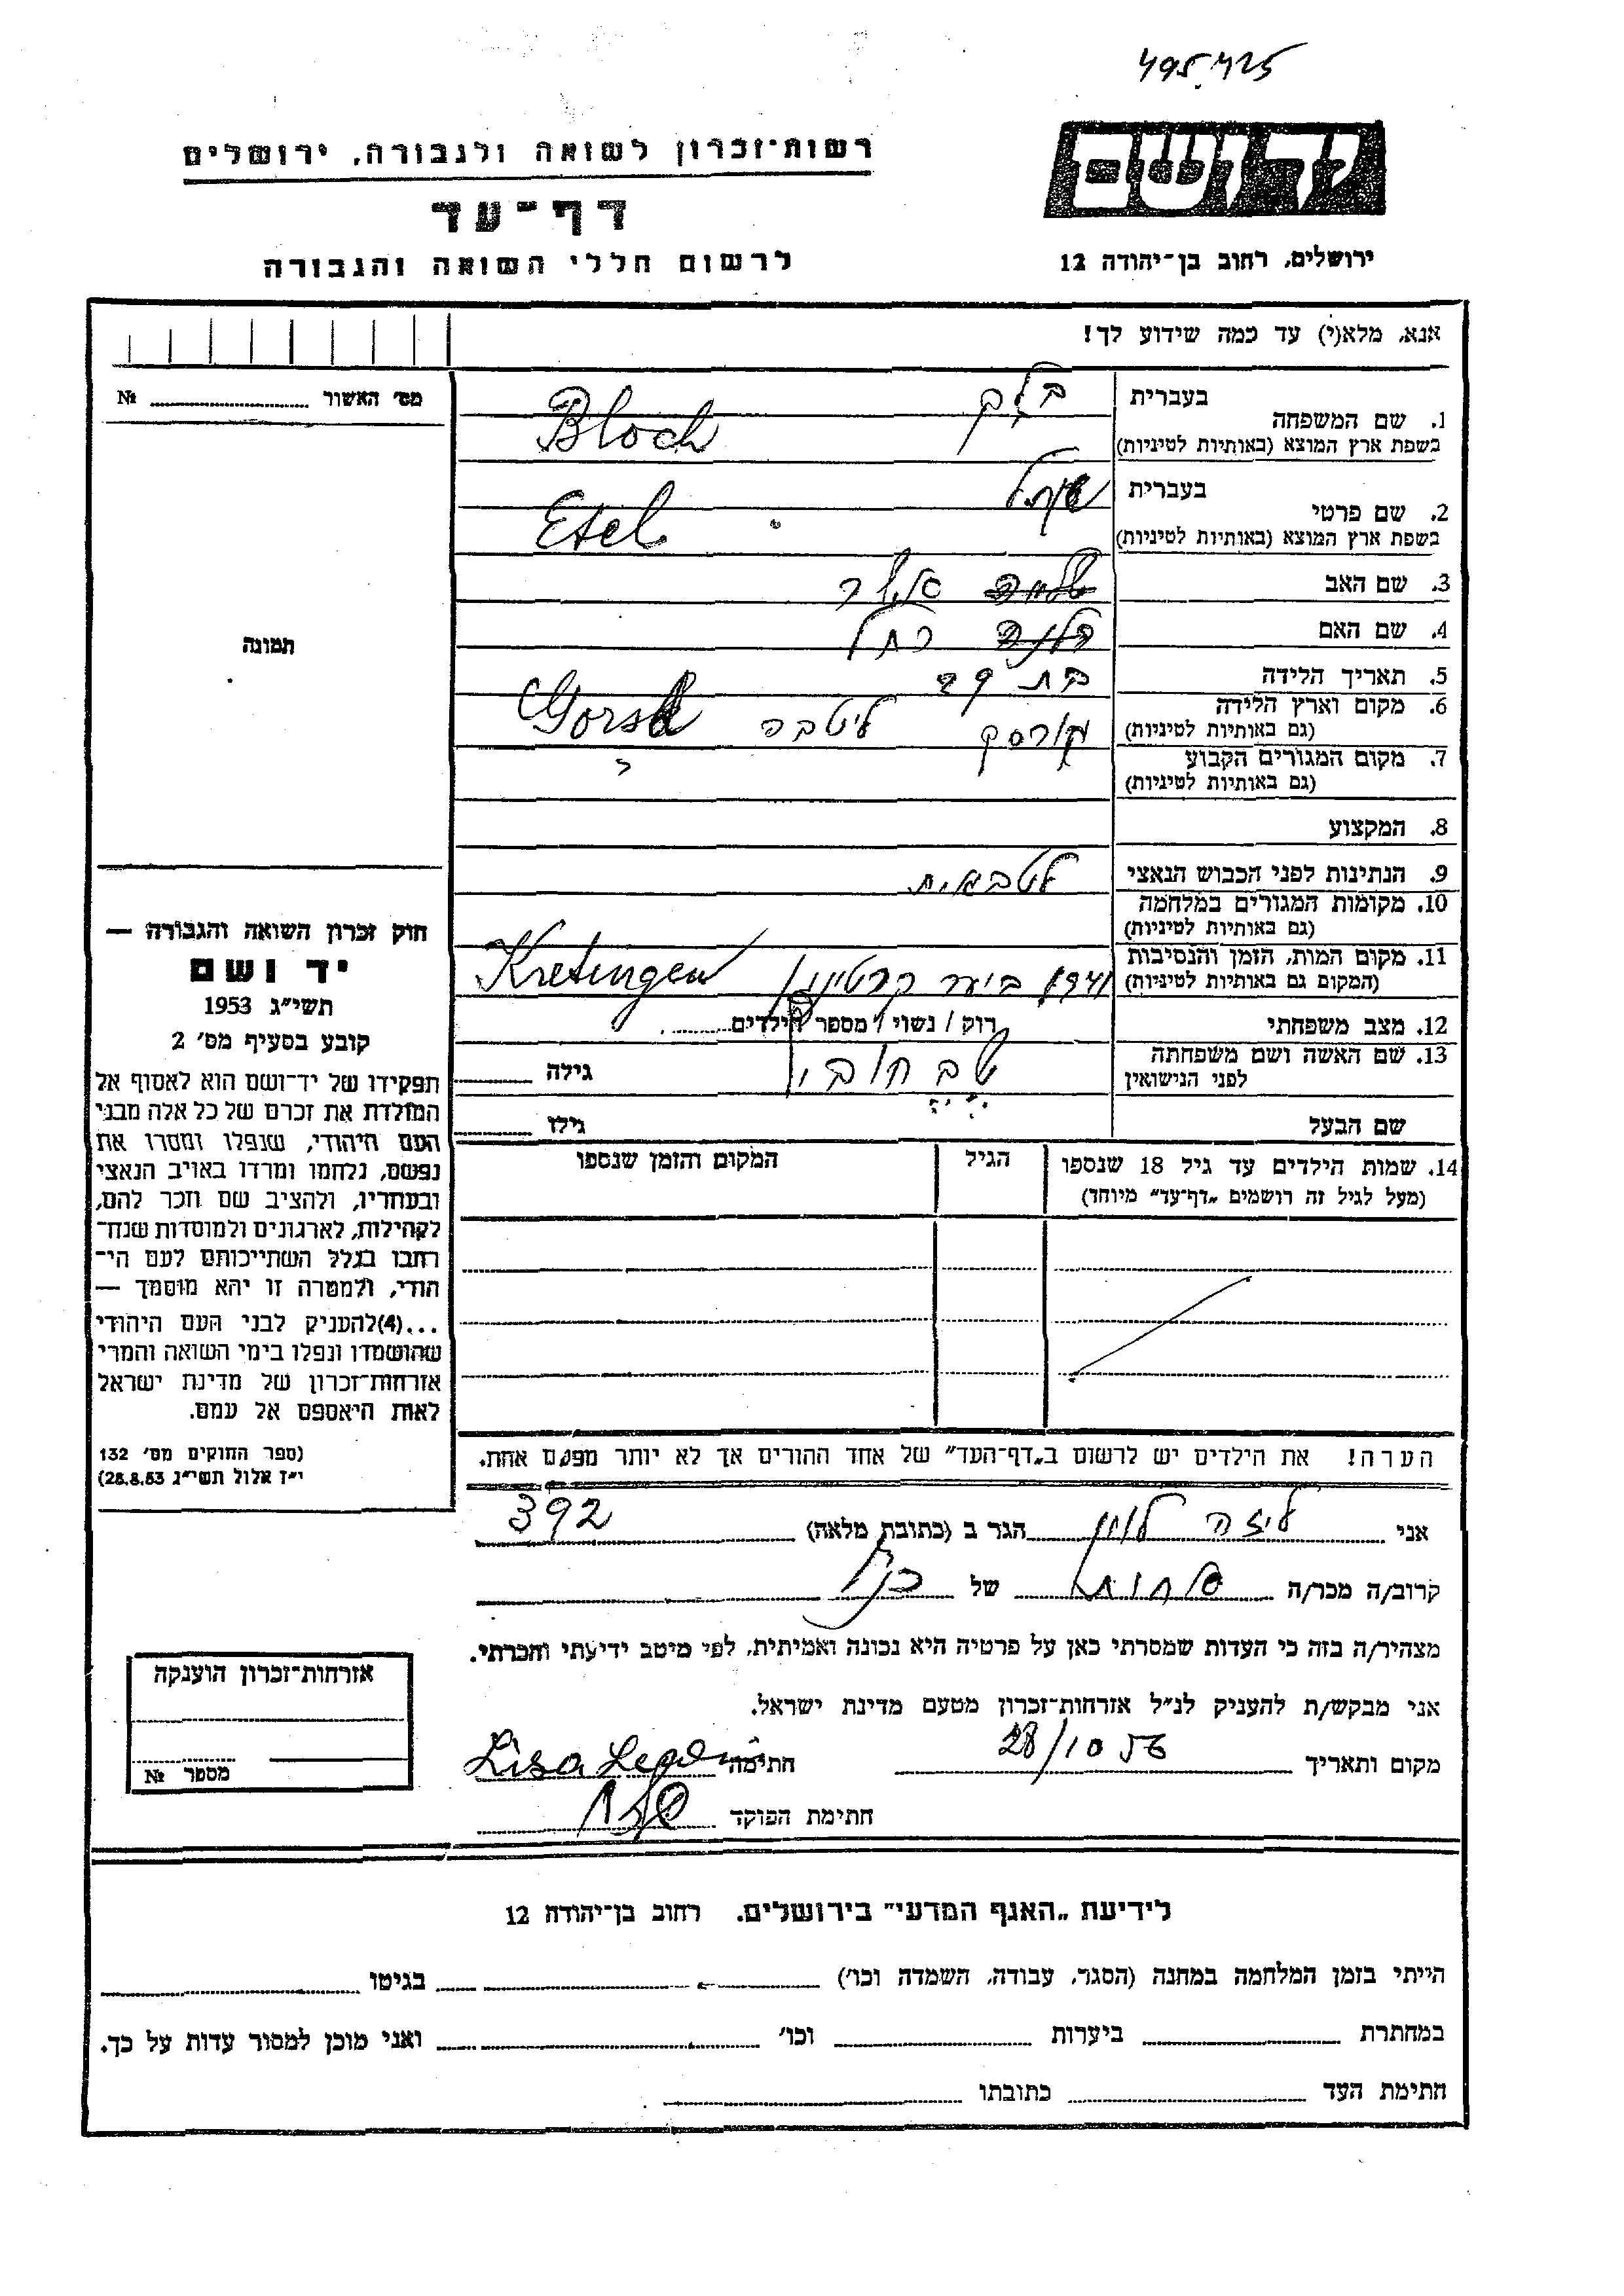 רשות־זכרון לשואה ולגבורה, ירושלים
דף־עד
לרשום חללי השואה והגבורה
ירושלים, רחוב בן־יהודה 12
אנא, מלא(י) עד כמה שידוע לך!
מס׳ האשור № 
תמונה
בעברית
1. שם המשפחה
בשפת ארץ המוצא (באותיות לטיניות)
בלך
Bloch
בעברית
2. שם פרטי
בשפת ארץ המוצא (באותיות לטיניות)
Etel
3. שם האב
4. שם האם
רחל
5. תאריך הלידה
בת 29
6. מקום וארץ הלידה
(גם באותיות לטיניות)
ליטבה Gorsd
7. מקום המגורים הקבוע
(גם באותיות לטיניות)
8. המקצוע
9. הנתינות לפני הכבוש הנאצי
ליטבאית
10. מקומות המגורים במלחמה
(גם באותיות לטיניות)
11. מקום המות, הזמן והנסיבות
(המקום גם באותיות לטיניות)
1941 ביער קרטינגן Kretingen
12. מצב משפחתי
רוק / נשוי / מספר הילדים
13. שם האשה ושם משפחתה
לפני הנישואין
גילה
שם הבעל
גילו
14. שמות הילדים עד גיל 18 שנספו
(מעל לגיל זה רושמים „דף־עד” מיוחד)
הגיל
המקום והזמן שנספו
הערה! את הילדים יש לרשום ב„דף־העד” של אחד ההורים אך לא יותר מפעם אחת.
חוק זכרון השואה והגבורה —
יד ושם
תשי״ג 1953
קובע בסעיף מס׳ 2
תפקידו של יד־ושם הוא לאסוף אל
המולדת את זכרם של כל אלה מבני
העם היהודי, שנפלו ומסרו את
נפשם, נלחמו ומרדו באויב הנאצי
ובעוזריו, ולהציב שם וזכר להם,
לקהילות, לארגונים ולמוסדות שנח־
רבו בגלל השתייכותם לעם הי־
הודי, ולמטרה זו יהא מוסמך —
...(4)להעניק לבני העם היהודי
שהושמדו ונפלו בימי השואה והמרי
אזרחות־זכרון של מדינת ישראל
לאות היאספם אל עמם.
(ספר החוקים מס׳ 132
י״ז אלול תשי״ג 28.8.53)
אני ליזה לוין הגר ב (כתובת מלאה) 392
קרוב/ה מכר/ה של
מצהיר/ה בזה כי העדות שמסרתי כאן על פרטיה היא נכונה ואמיתית, לפי מיטב ידיעתי והכרתי.
אני מבקש/ת להעניק לנ״ל אזרחות־זכרון מטעם מדינת ישראל.
מקום ותאריך 28/10 56 חתימה Lisa
חתימת הפוקד
אזרחות־זכרון הוענקה
מספר №
לידיעת „האגף המדעי” בירושלים. רחוב בן־יהודה 12
הייתי בזמן המלחמה במחנה (הסגר, עבודה, השמדה וכו׳) בגיטו
במחתרת ביערות וכו׳ ואני מוכן למסור עדות על כך.
חתימת העד כתובתו